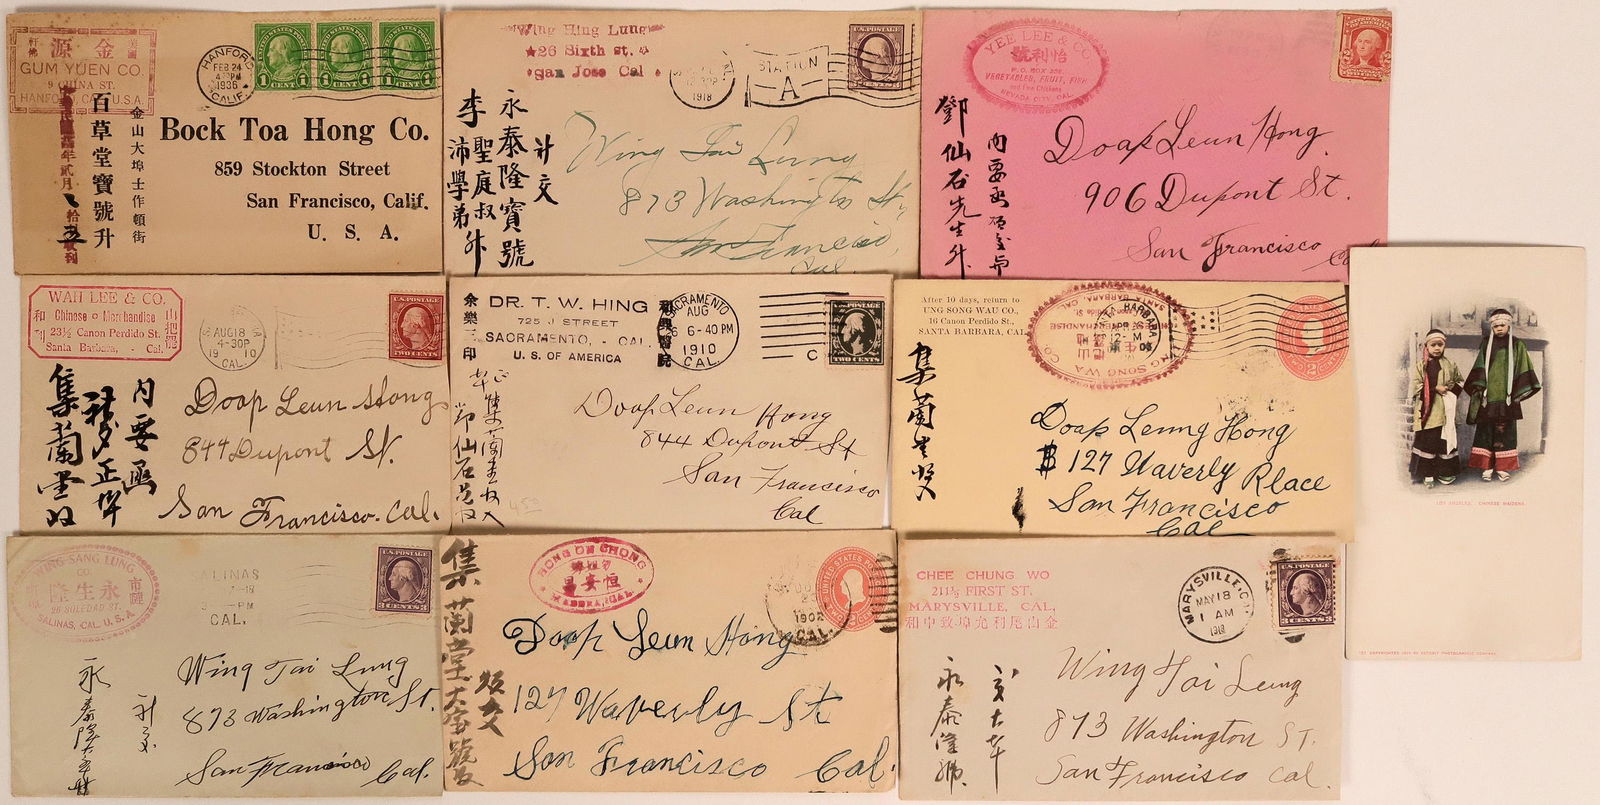 金源
美國
GUM YUEN CO.
9 CHINA ST.
HANFORD, CAL. U.S.A.
HANFORD
FEB 24
1936
CALIF.
UNITED STATES POSTAGE
1 CENT 1
1 CENT 1
1 CENT 1
金山大埠士作頓街
百草堂寶號升
Bock Toa Hong Co.
859 Stockton Street
San Francisco, Calif.
U. S. A.
Wing Hing Lung
26 Sixth st.
San Jose Cal
1918
STATION
A
永泰隆寶號
李聖庭叔
沛學弟
Wing Tai Lung
873 Washington St,
San Francisco,
Cal.
YEE LEE & CO.
怡利號
P.O. BOX
VEGETABLES, FRUIT, FISH
and Fine Chickens
NEVADA CITY, CAL.
鄧仙石先生升
內要
Doap Leun Hong.
906 Dupont St.
San Francisco
WAH LEE & CO.
Chinese Merchandise
23½ Canon Perdido St.
Santa Barbara, - Cal.
和利
AUG 18
4-30P
19 10
CAL.
U.S. POSTAGE
TWO CENTS
內要函
集蘭堂收
Doop Leun Hong
844 Dupont St.
San Francisco. Cal.
DR. T. W. HING
725 J STREET
SACRAMENTO, - CAL.
U. S. OF AMERICA
余樂三印
和興醫院
SACRAMENTO
AUG
6 6-40 PM
1910
CAL.
U.S. POSTAGE
TWO CENTS
Doap Leun Hong
844 Dupont St
San Francisco
Cal
After 10 days, return to
UNG SONG WAU CO.,
16 Canon Perdido St.,
SANTA BARBARA, CAL.
BARBARA
APR
Doap Leung Hong
127 Waverly Place
San Francisco
Cal
LOS ANGELES. CHINESE MAIDENS.
WING SANG LUNG
CO.
永生隆
26 SOLEDAD ST.
SALINAS, CAL. U. S. A.
SALINAS
PM
CAL.
U.S. POSTAGE
3 CENTS 3
Wing Tai Lung
873 Washington St.
San Francisco Cal.
HONG ON CHONG
恒安昌
MADERA, CAL.
1902
CAL.
集蘭堂大寶號收
Doop Leun Hong
127 Waverly St
San Francisco Cal.
CHEE CHUNG WO
211½ FIRST ST.
MARYSVILLE, CAL.
金山尾利允埠致中和
MARYSVILLE, CAL.
MAY 18
1 AM
1918
U.S. POSTAGE
3 CENTS 3
永泰隆號
Wing Tai Lung
873 Washington ST.
San Francisco Cal